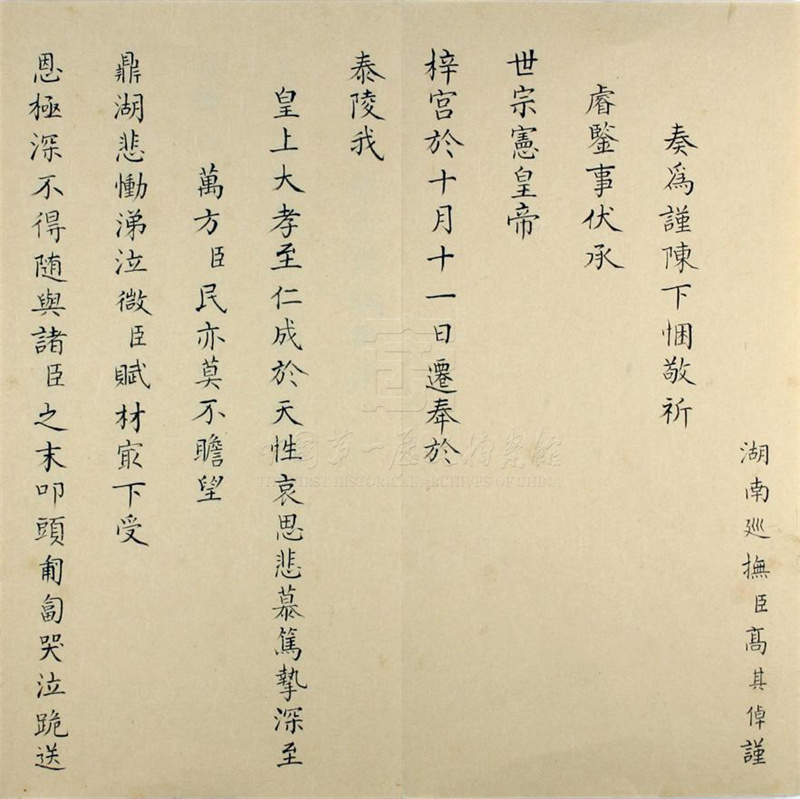 湖南廵撫臣高其倬謹
奏為謹陳下悃敬祈
睿鑒事伏承
世宗憲皇帝
梓宮於十月十一日遷奉於
泰陵我
皇上大孝至仁成於天性哀思悲慕篤摯深至
萬方臣民亦莫不瞻望
鼎湖悲慟涕泣微臣賦材最下受
恩極深不得随與諸臣之末叩頭匍匐哭泣跪送
中国第一历史档案馆
THE FIRST HISTORICAL ARCHIVES OF CHINA